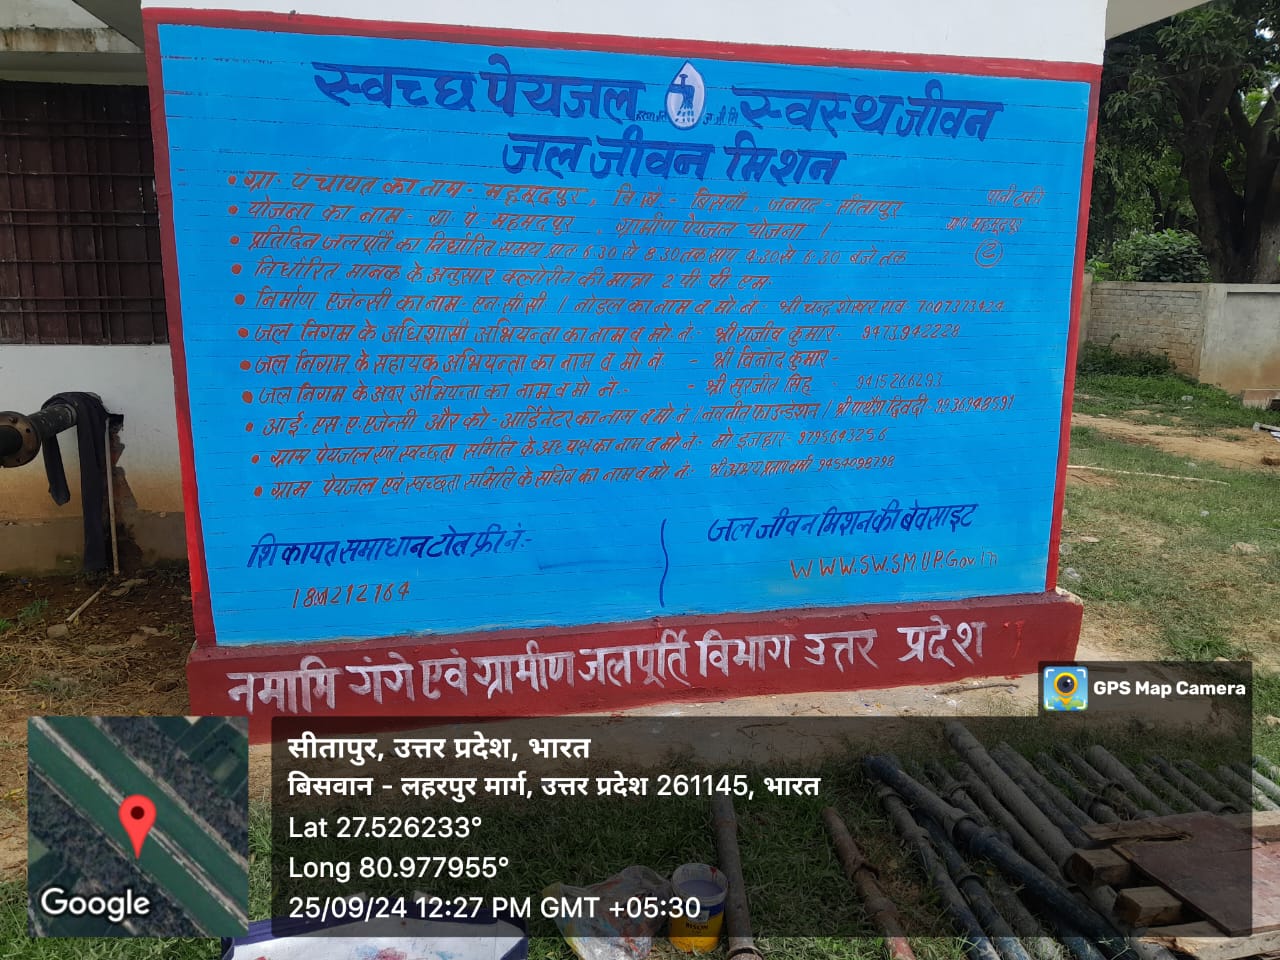 स्वच्छ पेयजल स्वस्थ जीवन
जल जीवन मिशन
• ग्रा. पंचायत का नाम- महमूदपुर, वि.ख.- बिसवाँ, जनपद- सीतापुर
पानी टंकी
• योजना का नाम- ग्रा. पे. महमदपुर, ग्रामीण पेयजल योजना।
महमूदपुर
2
• प्रतिदिन जलपूर्ति का निर्धारित समय प्रातः 6.30 से 8.30 तक सांय 4.30 से 6.30 बजे तक
• निर्धारित मानक के अनुसार क्लोरीन की मात्रा 2 पी पी एम.
• निर्माण एजेन्सी का नाम- एन.सी.सी / नोडल का नाम व मो नं- श्री चन्द्रशेखर राव 7007373424
• जल निगम के अधिशासी अभियन्ता का नाम व मो नं- श्री राजीव कुमार- 9473942228
• जल निगम के सहायक अभियन्ता का नाम व मो नं - श्री विनोद कुमार-
• जल निगम के अवर अभियन्ता का नाम व मो नं:- - श्री सुरजीत सिंह - 9415266293
• आई. एस. ए. एजेन्सी और को-आर्डिनेटर का नाम व मो नं / नवनीत फाउन्डेशन / श्री द्विवेदी-
• ग्राम पेयजल एवं स्वच्छता समिति के अध्यक्ष का नाम व मो नं- मो इजहार- 9795643256
• ग्राम पेयजल एवं स्वच्छता समिति के सचिव का नाम व मो नं- श्री अभय प्रताप वर्मा 9454098798
शिकायत समाधान टोल फ्री नं:-
जल जीवन मिशन की बेवसाइट
WWW.SWSMUP.Gov.In
नमामि गंगे एवं ग्रामीण जलपूर्ति विभाग उत्तर प्रदेश
GPS Map Camera
सीतापुर, उत्तर प्रदेश, भारत
बिसवान - लहरपुर मार्ग, उत्तर प्रदेश 261145, भारत
Lat 27.526233°
Long 80.977955°
25/09/24 12:27 PM GMT +05:30
Google